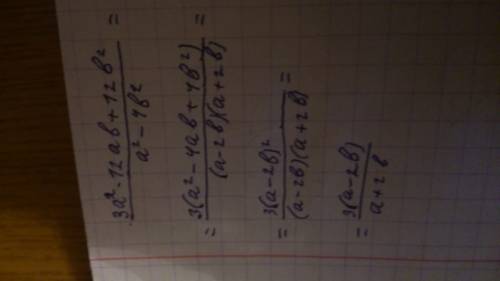 (3a² - 12ab + 12b²) / (a² - 4b²) =
= 3(a² - 4ab + 4b²) / (a - 2b)(a + 2b) =
= 3(a - 2b)² / (a - 2b)(a + 2b) =
= 3(a - 2b) / a + 2b